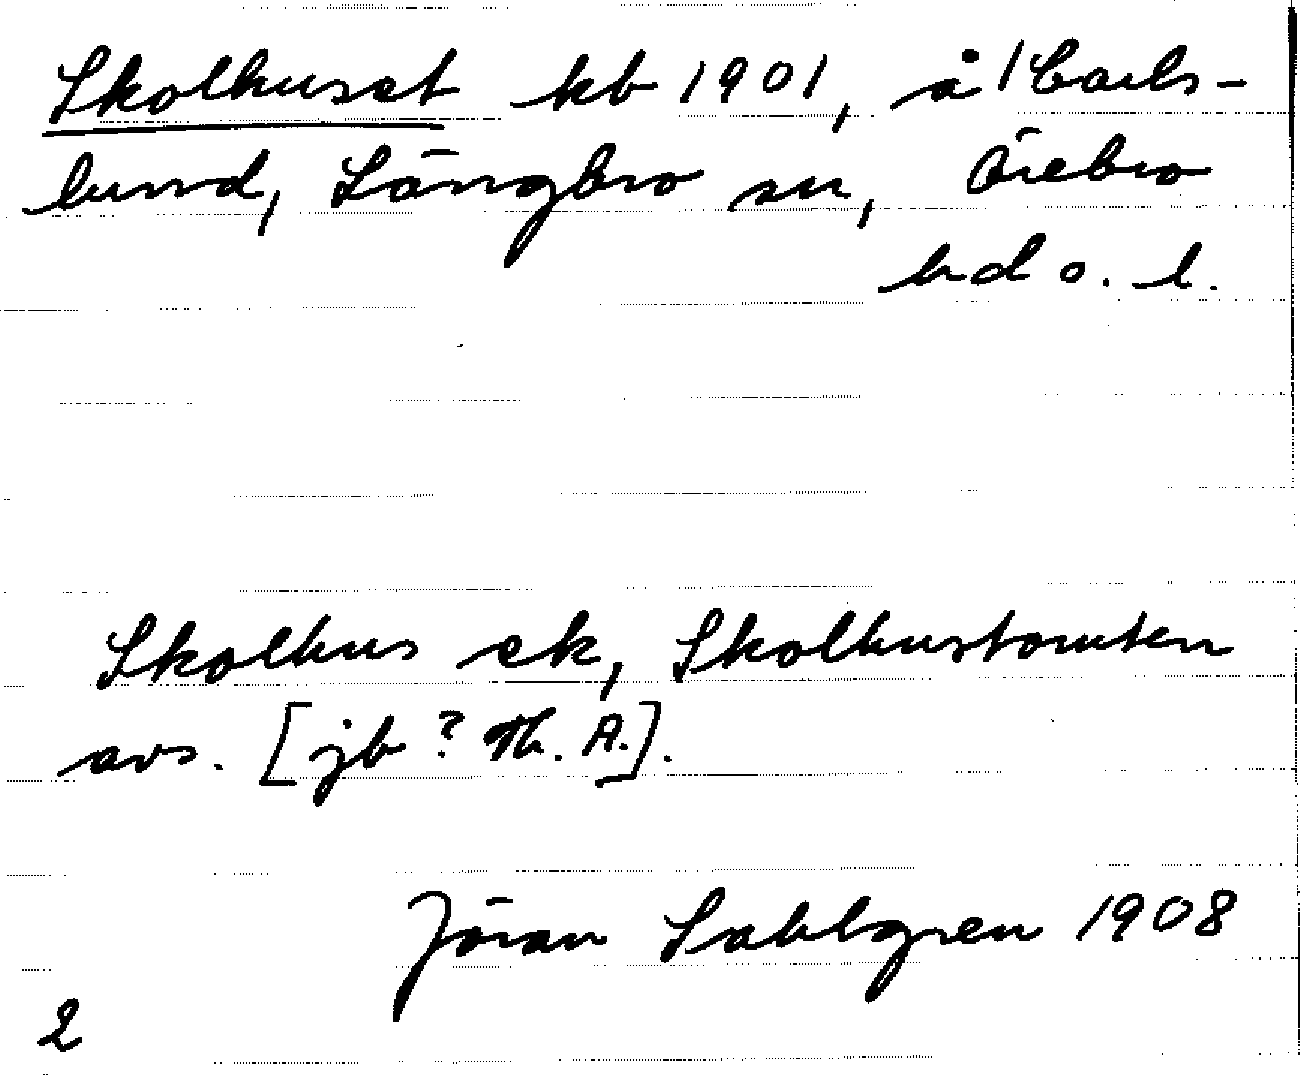 Skolhuset kb 1901, å 1 Carls-
lund, Längbro sn, Örebro
hd o. l.
Skolhus ek, Skolhustomten
avs. [jb? Th. A.].
Jöran Sahlgren 1908
2